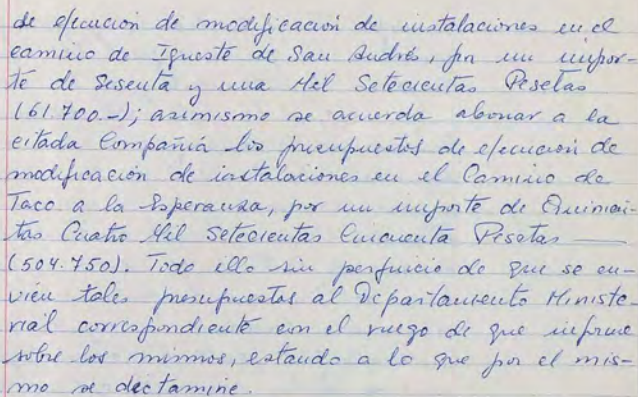 de ejecución de modificación de instalaciones en el
camino de Igueste de San Andrés, por un impor-
te de Sesenta y una Mil Setecientas Pesetas
(61.700.-); asimismo se acuerda abonar a la
citada Compañía los presupuestos de ejecución de
modificación de instalaciones en el Camino de
Taco a la Esperanza, por un importe de Quinien-
tas Cuatro Mil Setecientas Cincuenta Pesetas —
(504.750). Todo ello sin perjuicio de que se en-
víen tales presupuestos al Departamento Ministe
rial correspondiente con el ruego de que informe
sobre los mismos, estando a lo que por el mis-
mo se dictamine.